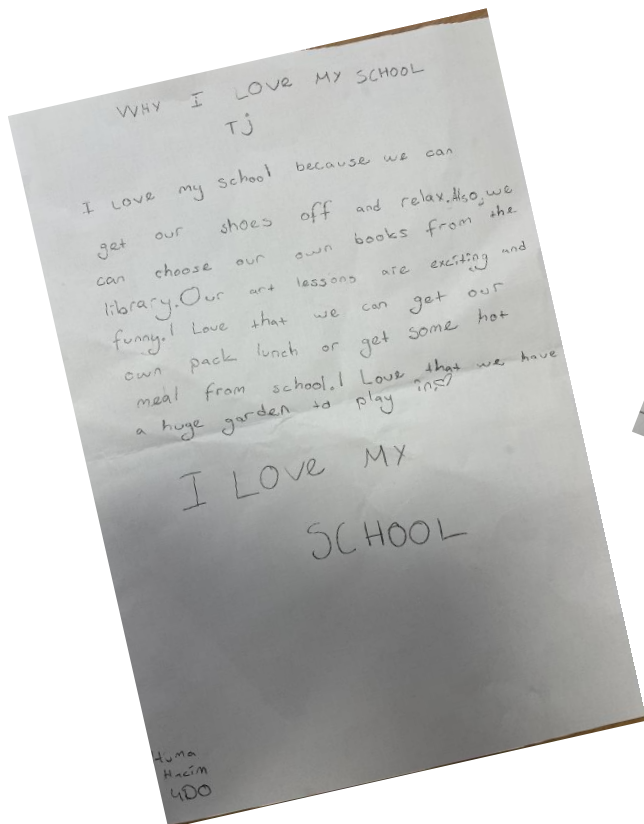 WHY I LOVE MY SCHOOL
Tj
I Love my school because we can
get our shoes off and relax. Also, we
can choose our own books from the
library. Our art lessons are exciting and
funny. I Love that we can get our
own pack lunch or get some hot
meal from school. I Love that we have
a huge garden to play in♡
I LOVE MY
SCHOOL
Huma
4DO